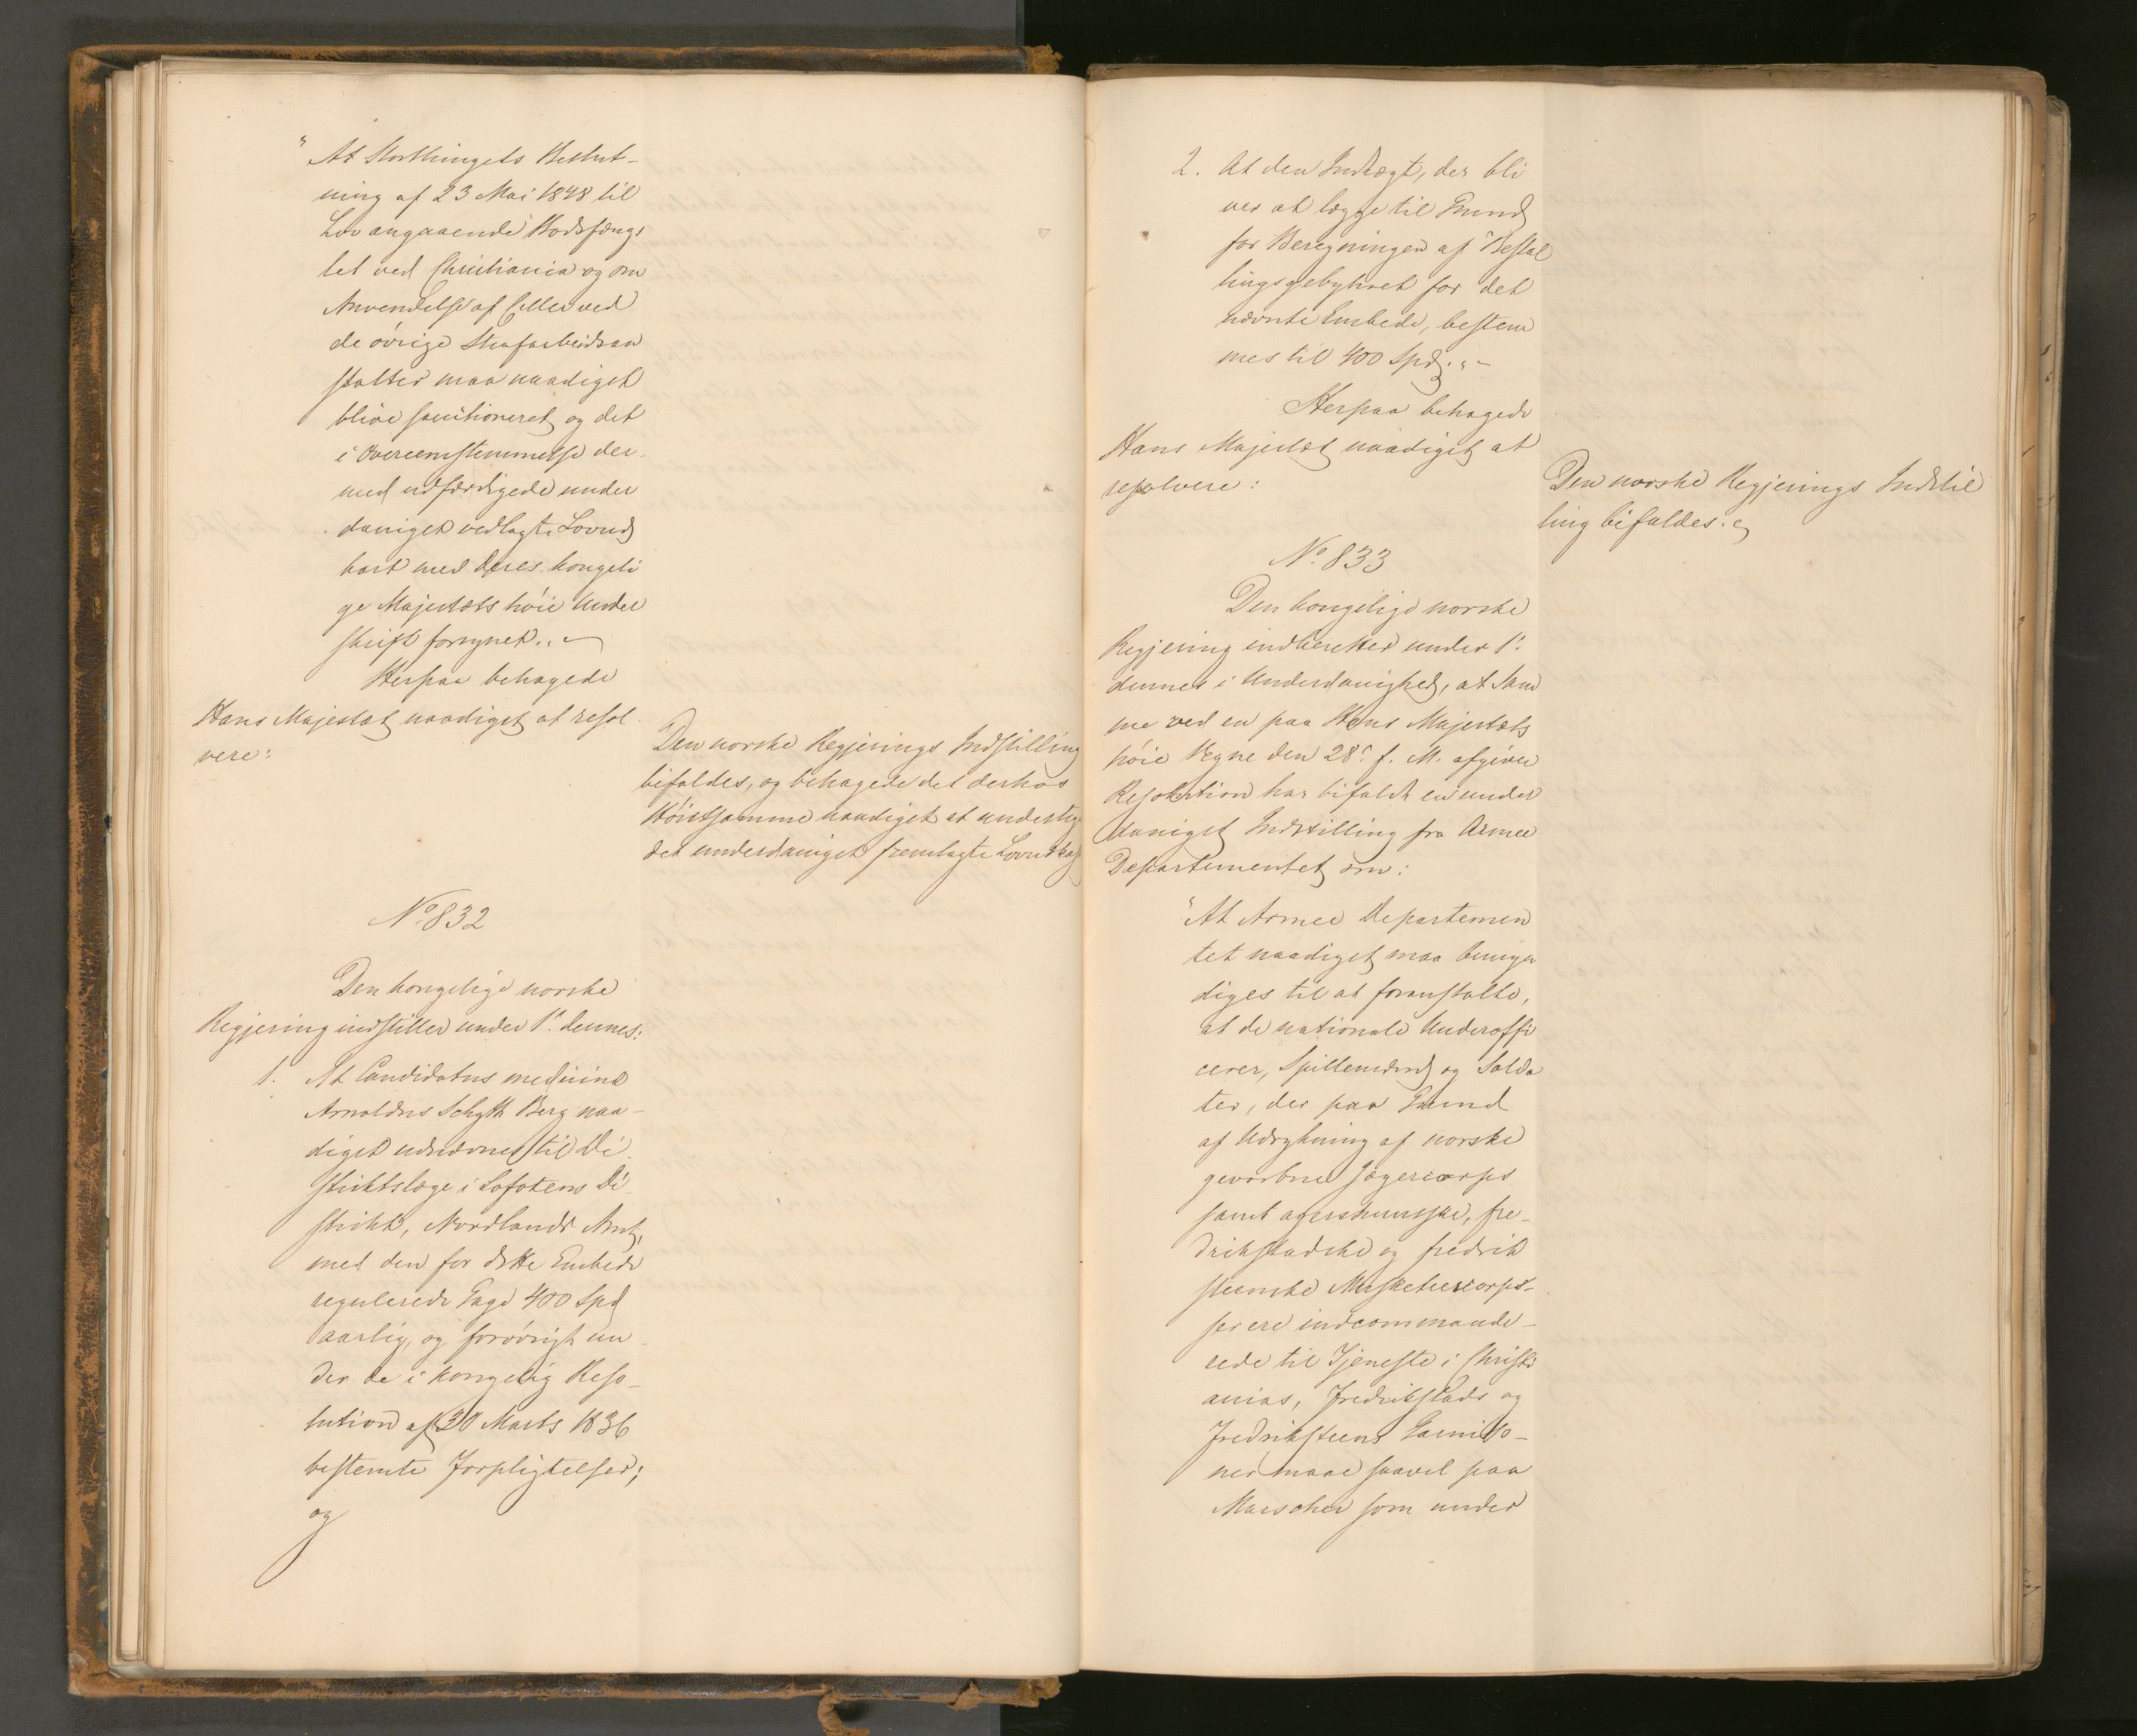 "At Storthingets Beslut-
ning af 23 Mai 1848 til
Lov angaaende Bodsfæng-
let ved Christiania og om
Anvendelse af Celler ved
de övrige Strafarbeidsan
stalter maa naadigst
blive sanctioneret og det
i Overeensstemmelse der-
med udfærdigede under
danigst vedlagte Lovud
kast med Deres Kongeli
ge Majestæts höie Under
skrift forsynet.. -
Herpaa behagede
Hans Majestæt naadigst at resol
vere:
Den norske Regjerings Indstilling
bifaldes, og behagede det derhos
Höistsamme naadigst at undertegne
det underdanigst fremlagte Lovudkast
No. 832
Den kongelige norske
Regjering indstiller under 1ste dennes:
1. At Candidatus medicinæ
Arnoldus Schytt Berg naa-
digst udnævnes til Di-
striktslæge i Lofotens Di-
strikt, Nordlands Amt,
med den for dette Embede
regulerede Gage 400 Spd
aarlig, og forövrigt un-
der de i kongelig Reso-
lution af 30 Marts 1836
bestemte Forpligtelser;
og
2. At den Indtægt, der bli
ver at lægge til Grund
for Beregningen af Bestal
lingsgebyhret for det
nævnte Embede, bestem
mes til 400 Spd. "-
Herpaa behagede
Hans Majestæt naadigst at
resolvere:
Den norske Regjerings Indstil
ling bifaldes.
No. 833
Den kongelige norske
Regjering indberetter under 1ste
dennes i Underdanighed, at Sam
me ved en paa Hans Majestæts
höie Vegne den 28de f. M. afgiven
Resolution har bifaldt en under
danigst Indstilling fra Armee
Departementet om:
"At Armee Departemen
tet naadigst maa bemyn
diges til at foranstalte,
at de nationale Underoffi
cerer, Spillemænd og Solda
ter, der paa Grund
af Udrykning af norske
gevorbne Jægercorps
samt agershuusske, fre-
drikstadske og fredrik
steenske Musketeercorps
ere indcommande-
rede til Tjeneste i Christi
anias, Fredrikstads og
Fredriksteens Garniso-
ner maae saavel paa
Marscher som under